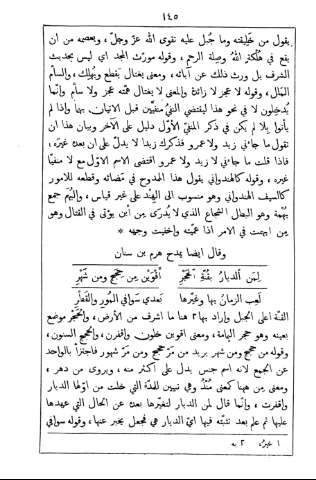 ١٤٥
يقول من خليقته وما جُبل عليه تقوى الله عزّ وجلّ، ويعصمه من ان
يقع في هلكة الله وصلة الرحم، وقوله مورّث المجد اي ليس بحديث
الشرف بل ورث ذلك عن آبائه، ومعنى يغتال يقطع ويهلك، والسأم
الملال، وقوله لا عجز لا زائدة والمعنى لا يغتال همّته عجز ولا سأم وإنّما
يُدخلون لا في نحو هذا ليقتضي النفي منفيَّين قبل الاتيان بها وإذا لم
يأتوا بلا لم يكن في ذكر المنفيّ الأوّل دليل على الآخر وبيان هذا ان
تقول ما جاءني زيد ولا عمرو فذكرك زيدا لا يدلّ على ان بعك غيره،
فاذا قلت ما جاءني لا زيد ولا عمرو اقتضى الاسم الاوّل مع لا منفيّا
غيره، وقوله كالهندواني يقول هذا الممدوح في مضائه وقطعه للامور
كالسيف الهندواني وهو منسوب الى الهند على غير قياس، والبُهَم جمع
بُهْمة وهو البطل الشجاع الذي لا يُدرى من أين يوتى في القتال وهو
من ابهمت في الامر اذا عمّيته وأخفيت وجهه *
وقال ايضا يمدح هرم بن سنان
لِمَنِ الديارُ بقُنّةِ الحِجْرِ أقْوَيْنَ مِن حِجَجٍ ومن شَهْرِ
لَعِبَ الزمانُ بها وغيّرها بَعْدي سَوافي المُورِ والقَطْرِ
القنّة اعلى الجبل وإراد بها ٢ هنا ما اشرف من الأرض، والحِجْر موضع
بعينه وهو حجر اليمامة، ومعنى اقوين خلون واقفرن، والحجج السنون،
وقوله من حجج ومن شهر يريد من مرّ حجج ومن مرّ شهور فاجتزأ بالواحد
عن الجمع لانه اسم جنس يدلّ على أكثر منه، ويروى من دهر،
ومعنى من ههنا كمعنى مُنْذُ وهي تبيين للمدّة التي خلت من اوّلها الديار
واقفرت، وإنّما قال لمن الديار لتغيّرها بعك عن الحال التي عهدها
عليها ثم علم بعد تثبّته فيها ايّ الديار هي فجعل يخبر عنها، وقوله سوافي
١ غيرُه. ٢ به